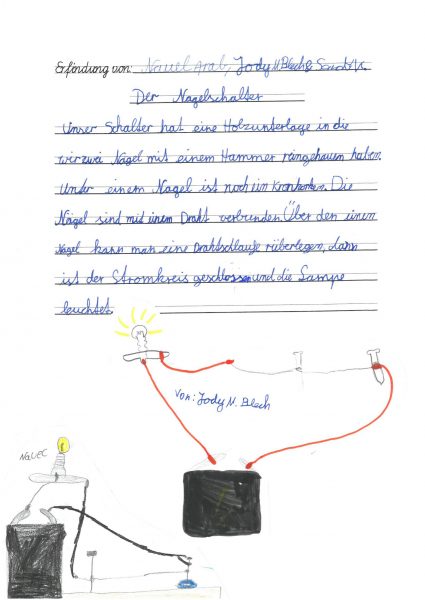 Erfindung von: Nauel Arab, Jody N. Blech &
Der Nagelschalter
Unser Schalter hat eine Holzunterlage in die
wir zwei Nägel mit einem Hammer reingehauen haben.
Unter einem Nagel ist noch ein Kronkorken. Die
Nägel sind mit inem Draht verbunden. Über den einen
Nagel kann man eine Drahtschlaufe rüberlegen, dann
ist der Stromkreis geschlossen und die Lampe
leuchtet.
von: Jody N. Blech
NaUEL